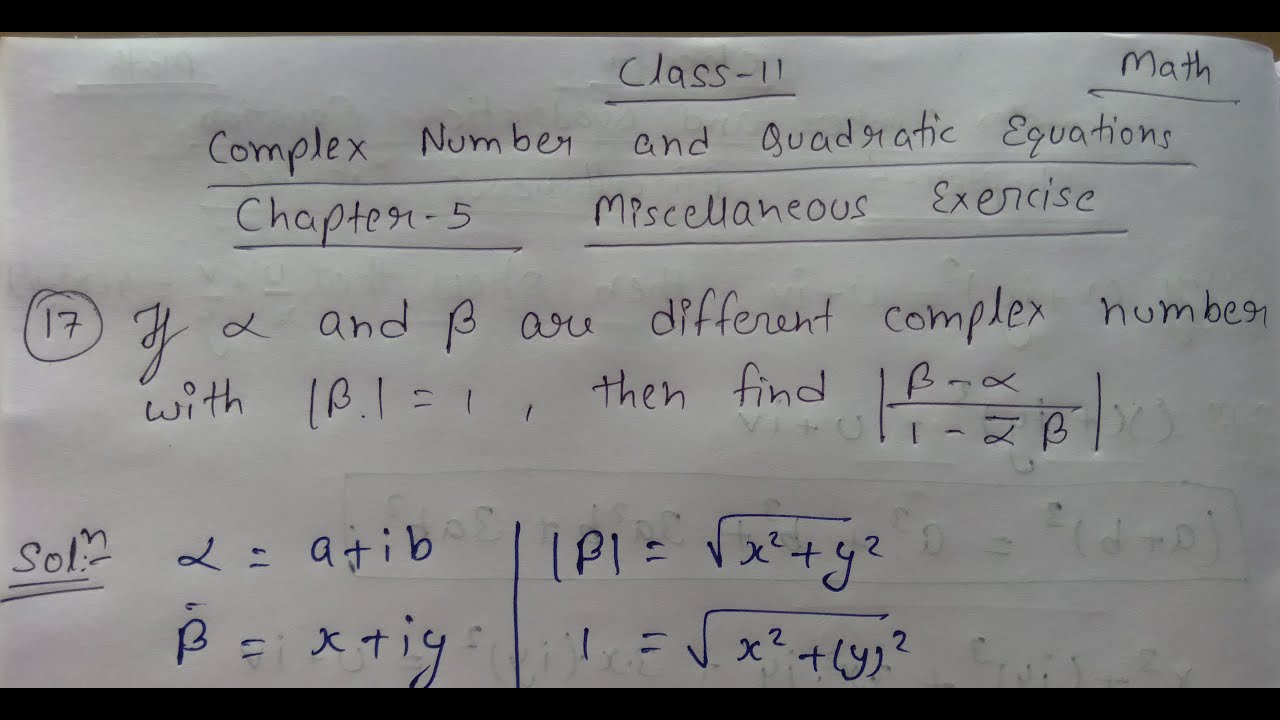 Class-11
Math
Complex Number and Quadratic Equations
Chapter-5 Miscellaneous Exercise
17 If α and β are different complex number
with |β.| = 1 , then find |β - α / 1 - ᾱ β|
Solⁿ:- α = a+ib | |β| = √x²+y²
β = x+iy | 1 = √x²+(y)²